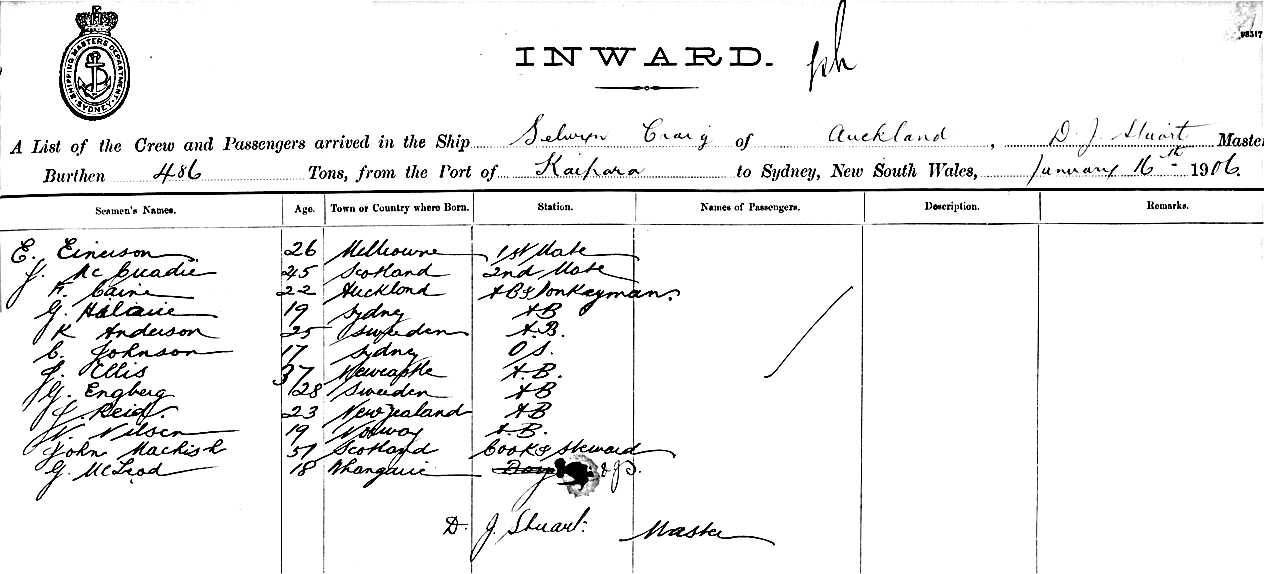 SHIPPING MASTERS DEPARTMENT
SYDNEY
INWARD.
A List of the Crew and Passengers arrived in the Ship Selwyn Craig of Auckland, D. J. Stuart Master
Burthen 486 Tons, from the Port of Kaipara to Sydney, New South Wales, January 16th 1906.
Seamen's Names. Age. Town or Country where Born. Station. Names of Passengers. Description. Remarks.
E. Einerson 26 Melbourne 1st Mate
J. McQuadie 45 Scotland 2nd Mate
F. Caine 22 Auckland AB & Donkeyman.
G. 19 Sydney AB
K Anderson 25 Sweden A.B.
C. Johnson 17 Sydney O S.
J. Ellis 37 Newcastle A.B.
G. Engberg 28 Sweden AB
J. Reid 23 New Zealand AB
N. Nilsen 19 Norway A.B.
John 51 Scotland Cook & Steward
G. McLeod 18 Whangarie Boy
D. J. Stuart. Master